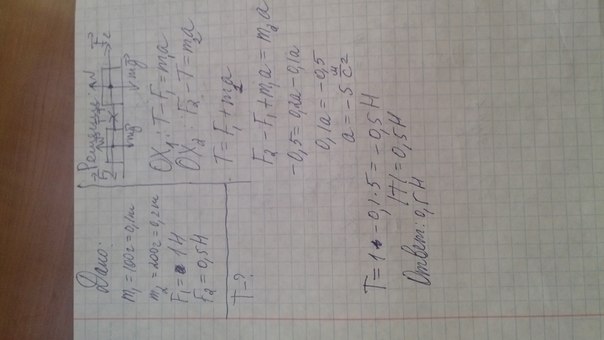 Дано:
m₁ = 100г = 0,1т
m₂ = 200г = 0,2т
F₁ = 1Н
F₂ = 0,5Н
T-?
Решение:
N N
F₁ T T F₂
mg mg
X
OX₁: T-F₁=m₁a
OX₂: F₂-T=m₂a
T=F₁+m₂a
F₂-F₁+m₁a=m₂a
-0,5=0,2a-0,1a
0,1a=-0,5
a=-5 м/с²
T=1·-0,1·5=-0,5Н
|T|=0,5Н
Ответ: 0,5Н